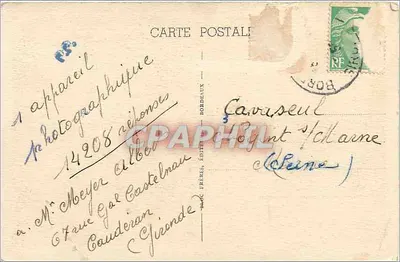 CARTE POSTALE
P.P.
1 appareil
photographique
14208 réponses
à Mr Meyer Albert
67 rue Gal Castelnau
Caudéran
(Gironde)
BLOC FRÈRES, BORDEAUX
3
s/Marne
(Seine)
RF
BORD
CPAPHIL